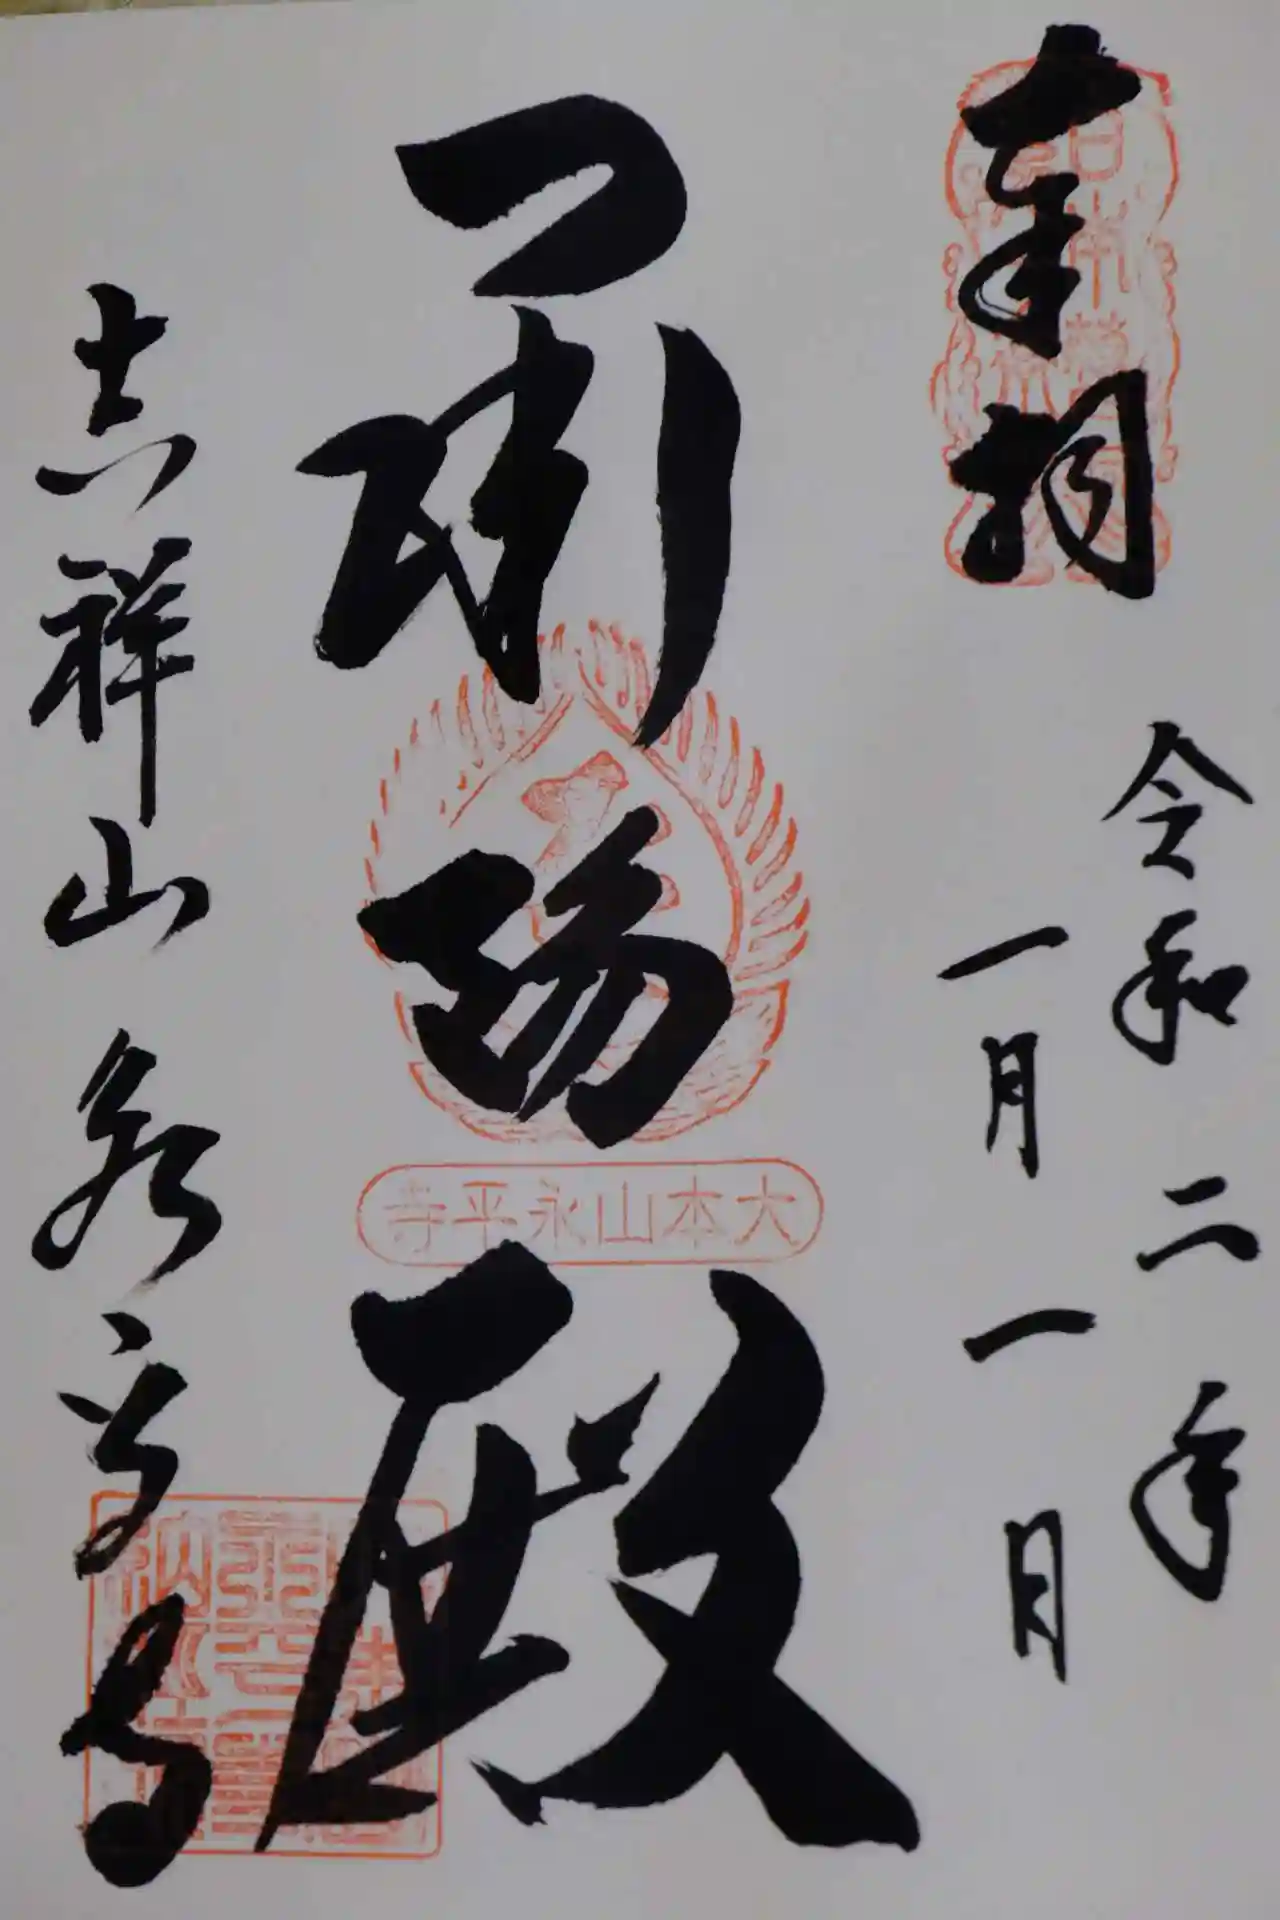 奉拝
令和二年
一月一日
承陽殿
大本山永平寺
吉祥山永平寺